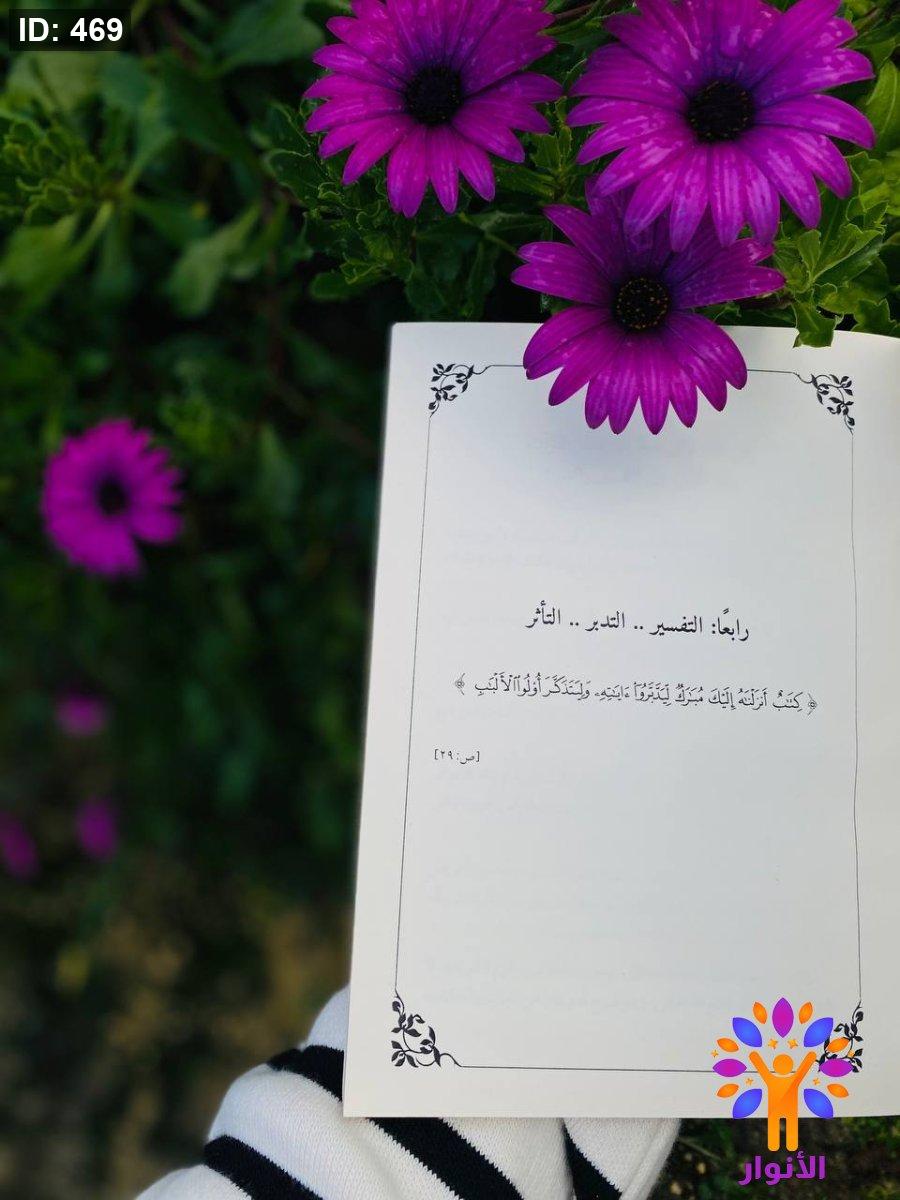 ID: 469
رابعًا: التفسير .. التدبر .. التأثر
﴿ كِتَٰبٌ أَنزَلْنَٰهُ إِلَيْكَ مُبَٰرَكٌ لِّيَدَّبَّرُوٓا۟ ءَايَٰتِهِۦ وَلِيَتَذَكَّرَ أُو۟لُوا۟ ٱلْأَلْبَٰبِ ﴾
[ص: ٢٩]
الأنوار